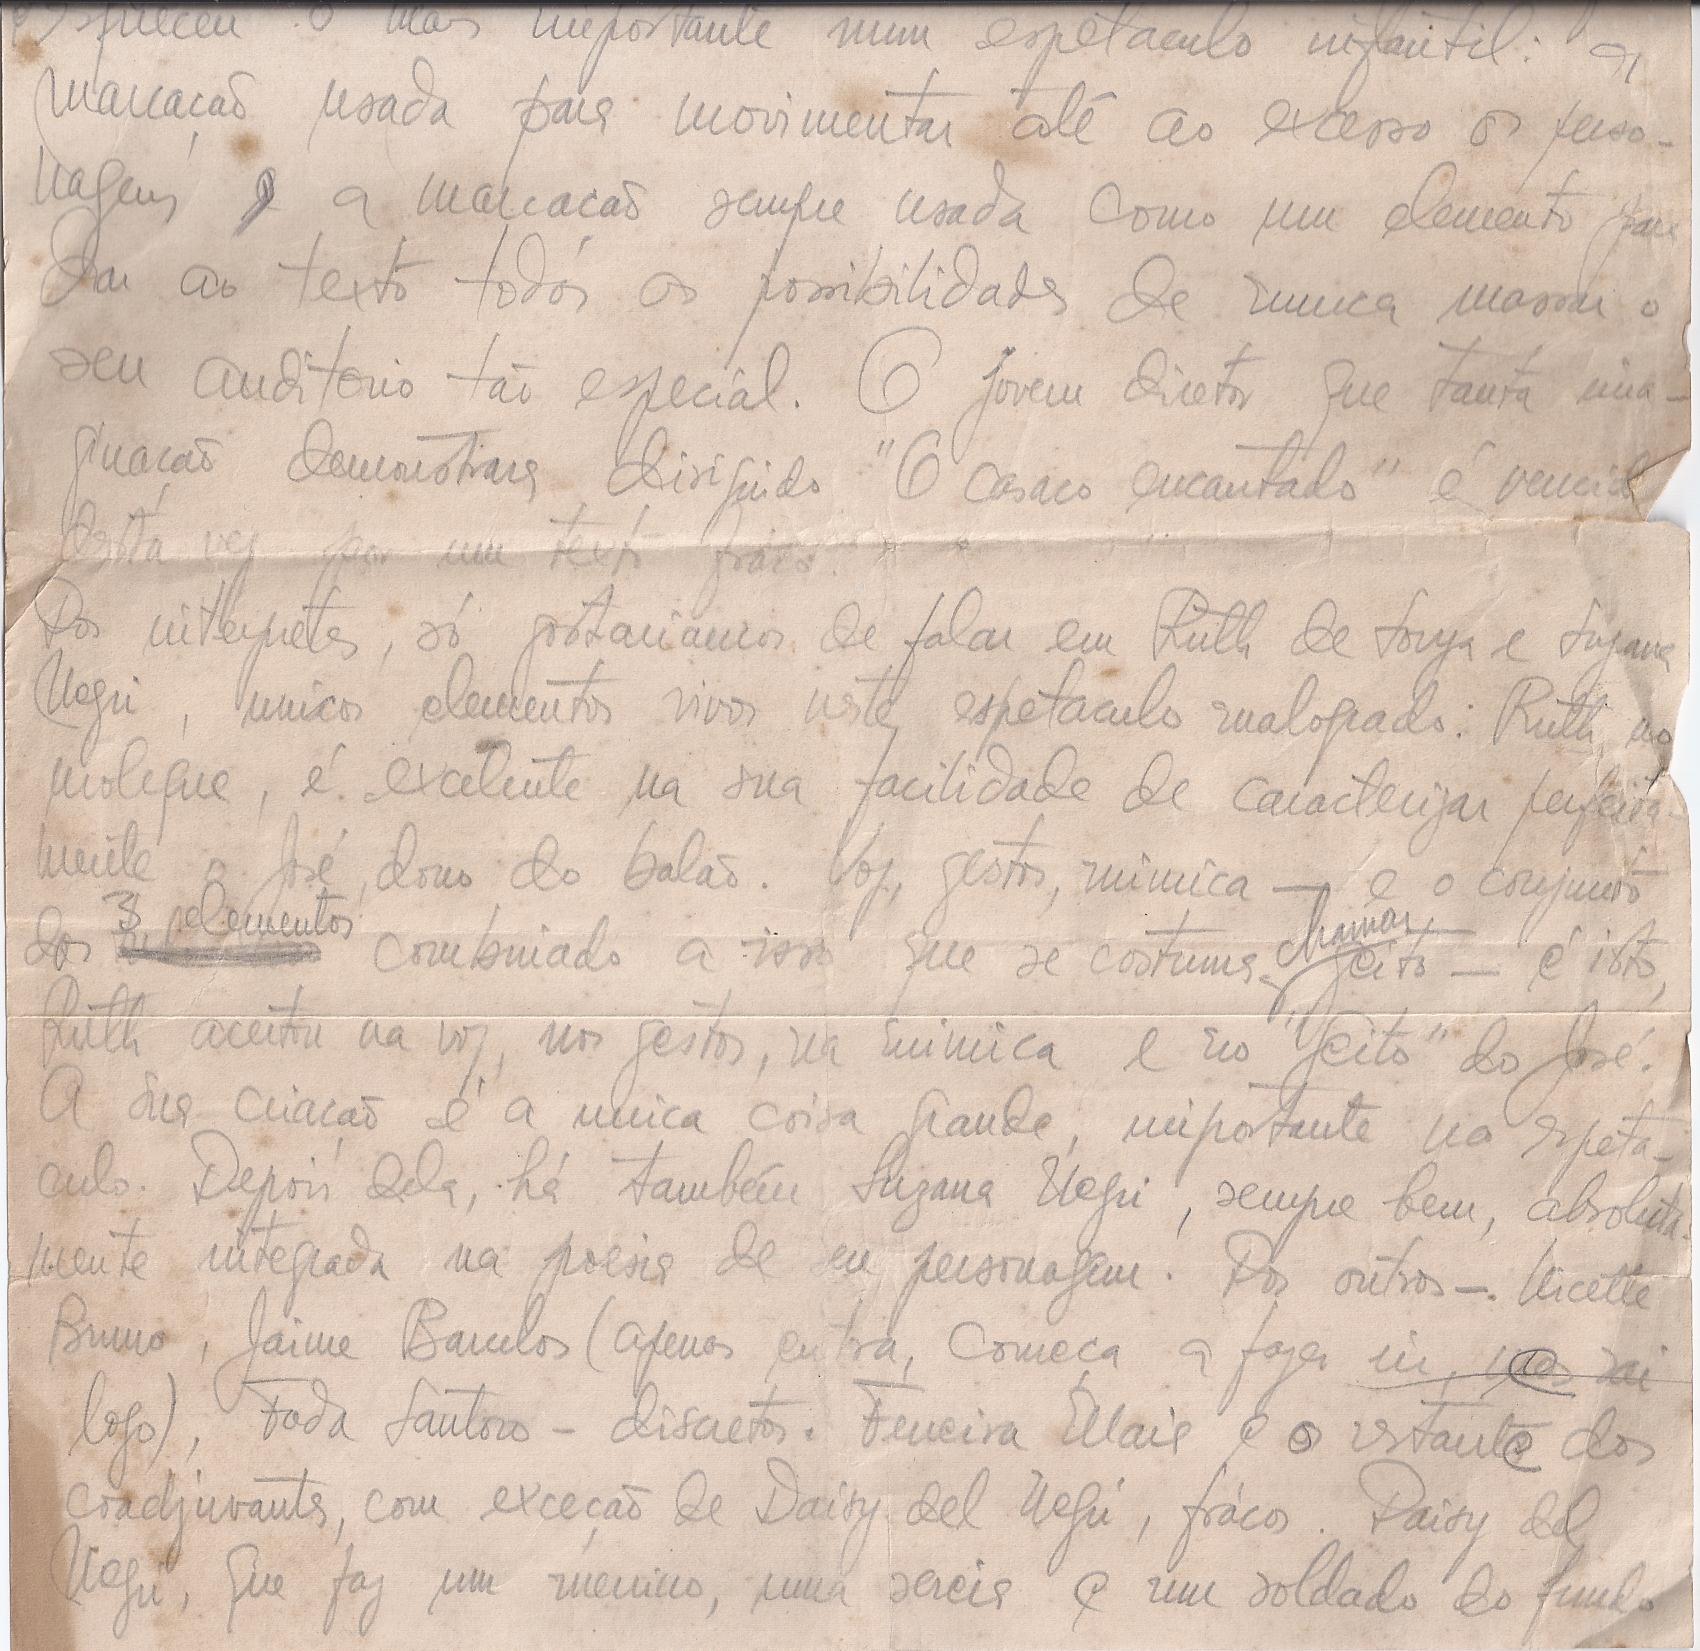 esqueceu o mais importante num espetaculo infantil: a
marcação usada para movimentar até ao excesso os perso-
nagens e a marcação sempre usada como um elemento para
dar ao texto todas as possibilidades de nunca massar o
seu auditorio tão especial. O jovem diretor que tanta ima-
ginação demonstrara dirigindo "O casaco encantado" é vencido
desta vez por um texto fraco.
Dos interpretes, só gostariamos de falar em Ruth de Souza e Suzana
Negri, unicos elementos vivos neste espetaculo malogrado: Ruth, no
moleque, é excelente na sua facilidade de caracterizar perfeita-
mente o José, dono do balão. Voz, gestos, mimica — e o conjunto
dos 3 elementos combinado a isso que se costuma chamar jeito — é isto,
Ruth acertou na voz, nos gestos, na mimica e no "jeito" do José.
A sua criação é a unica coisa grande, importante no espeta-
culo. Depois dela, há também Suzana Negri, sempre bem, absoluta-
mente integrada na poesia de seu personagem. Dos outros — Nicette
Bruno, Jaime Barcelos (apenas entra, começa a fazer rir, mas sai
logo), Fada Santoro — discretos. Ferreira Maia e o restante dos
coadjuvantes, com exceção de Daisy del Negri, fracos. Daisy del
Negri, que faz um menino, uma sereia e um soldado do fundo